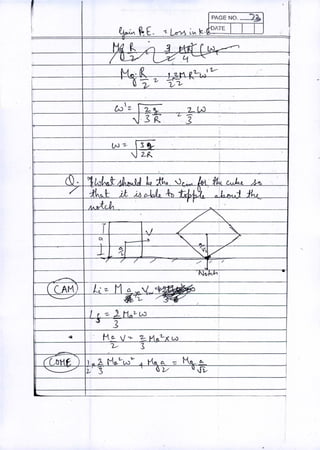 PAGE NO. 73
DATE
Gain P.E. = Loss in K.E
Mg R/2 = 1/2 3/2 MR² ω'²
ω' = √(2g/3R) = 2ω/3
ω = √(3g/2R)
Q. What should be the Vcm for the cube so
that it is able to tipple about the
notch.
a
a/2
V
a/√2
Notch
CAM Li = M a/2 V
Lf = 2/3 Ma²ω
Ma/2 V = 2/3 Ma² × ω
COME 1/2 2/3 Ma²ω² + Mg a/2 = Mg a/√2